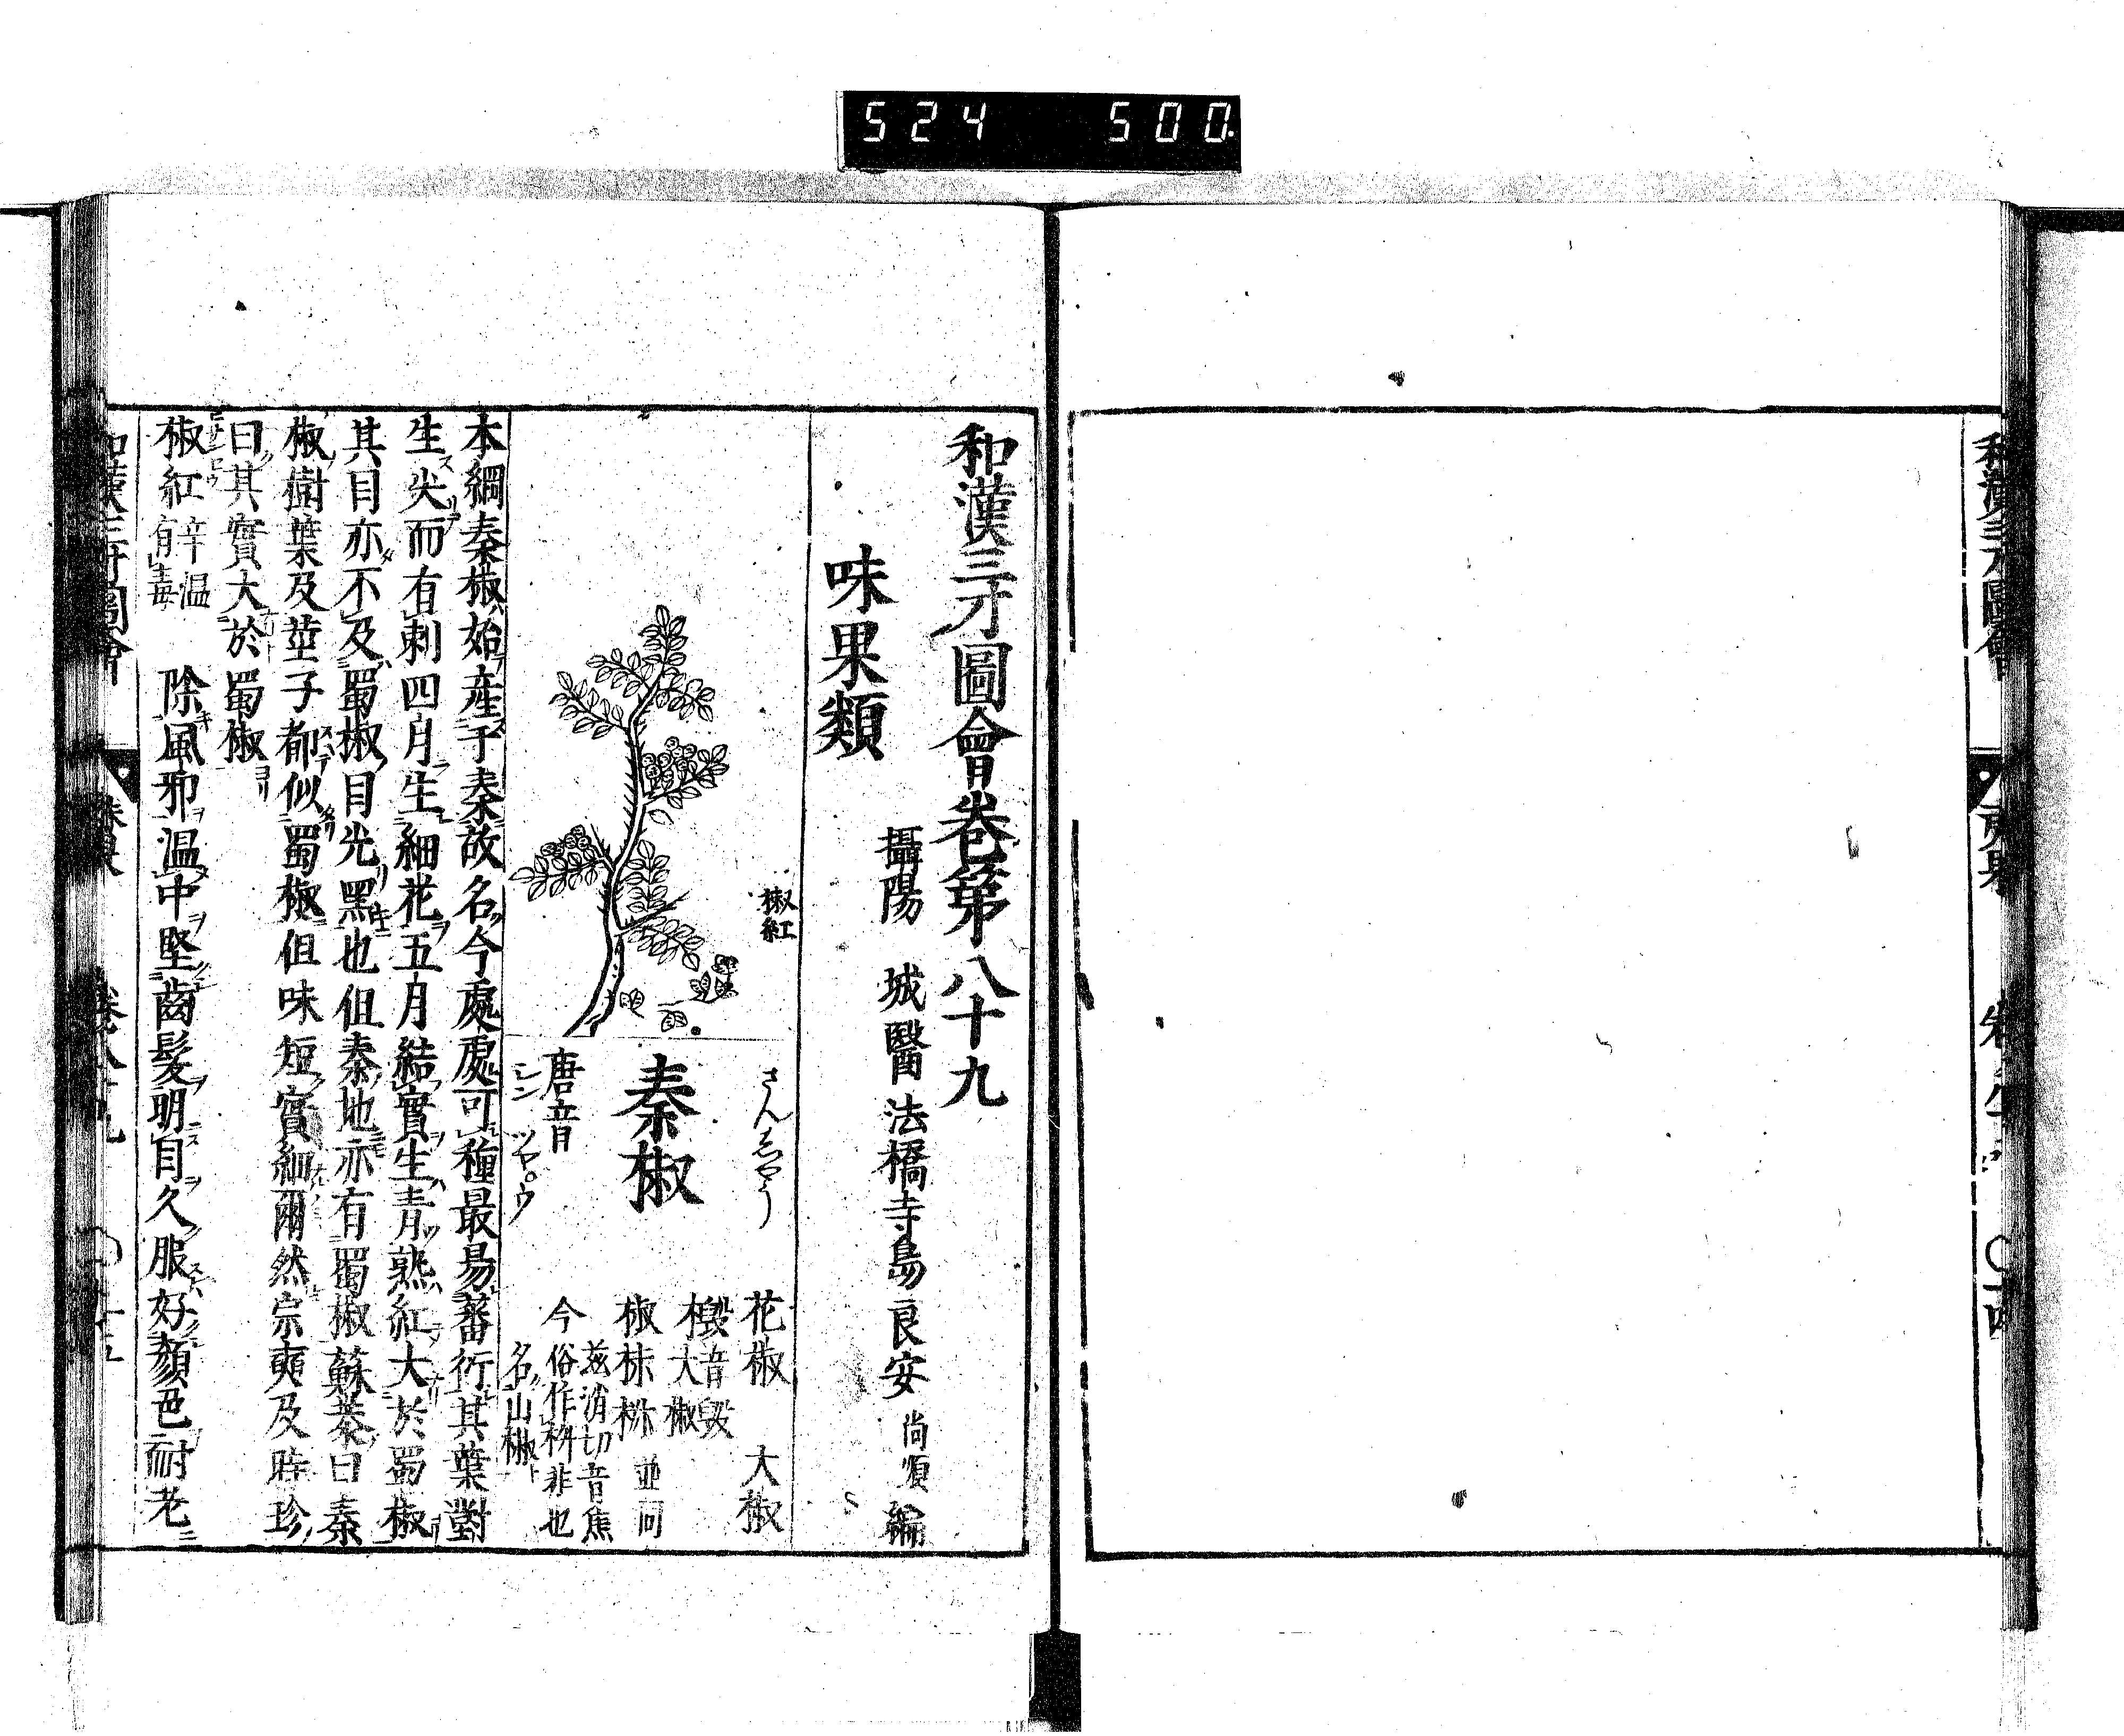 524 500
和漢三才圖會卷第八十九
攝陽 城醫法橋寺島良安尚順編
味果類
椒紅
さんゑやう
秦椒
唐音
シン ツヤ゜ウ
花椒 大椒
檓音毀
大椒
椒 茮 並同
茲消切音焦
今俗作枡非也
名山椒
本綱秦椒始産于秦故名今處處可種最易蕃衍其葉對
生尖而有刺四月生細花五月結實生青熟紅大於蜀椒
其目亦不及蜀椒目光黑也但秦地亦有蜀椒蘇恭曰秦
椒樹葉及莖子都似蜀椒但味短實細爾然宗奭及時珍
曰其實大於蜀椒
椒紅辛温有毒 除風邪温中堅齒髮明目久服好顏色耐老